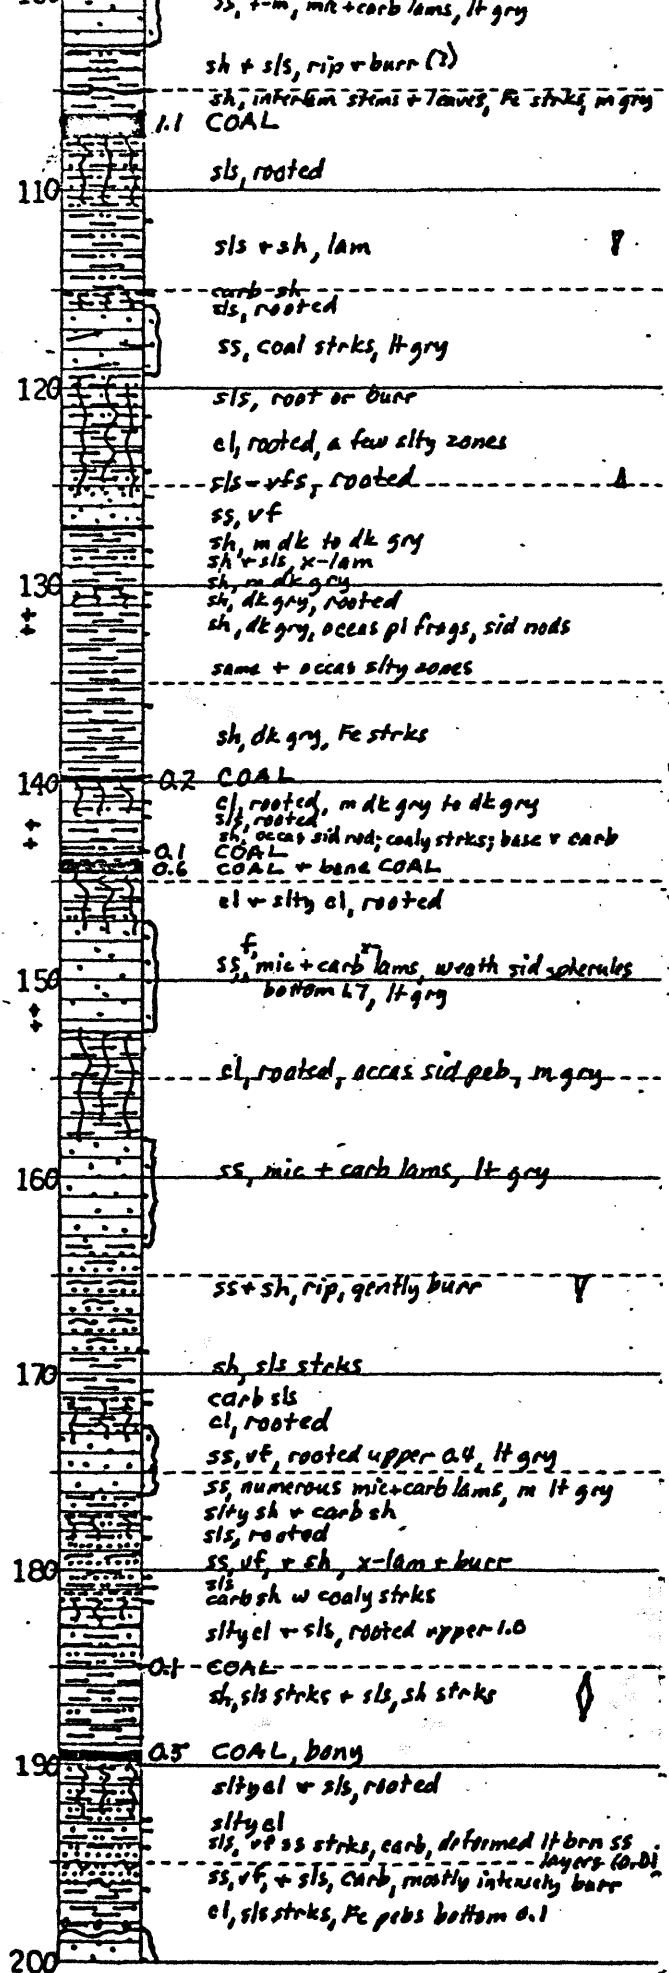 ss, f-m, mic + carb lams, lt gry
sh + sls, rip + burr (?)
sh, interlam stems + leaves, Fe strks, m gry
1.1 COAL
sls, rooted
110
sls + sh, lam
carb sh
sls, rooted
ss, coal strks, lt gry
120
sls, root or burr
cl, rooted, a few slty zones
sls - vfs, rooted
ss, vf
sh, m dk to dk gry
sh + sls, x-lam
130
sh, m dk gry
sh, dk gry, rooted
++
sh, dk gry, occas pl frags, sid nods
same + occas slty zones
sh, dk gry, Fe strks
140
0.2 COAL
cl, rooted, m dk gry to dk gry
slt, rooted
++
sh, occas sid nod; coaly strks; base v carb
0.1 COAL
0.6 COAL + bone COAL
cl + slty cl, rooted
ss, f, mic + carb x-lams, weath sid spherules
150
bottom 1.7, lt gry
++
cl, rooted, occas sid peb, m gry
160
ss, mic + carb lams, lt gry
ss + sh, rip, gently burr
170
sh, sls strks
carb sls
cl, rooted
ss, vf, rooted upper 0.4, lt gry
ss, numerous mic+carb lams, m lt gry
slty sh + carb sh
sls, rooted
180
ss, vf, + sh, x-lam + burr
sls
carb sh w coaly strks
slty cl + sls, rooted upper 1.0
0.1 COAL
sh, sls strks + sls, sh strks
0.5 COAL, bony
190
slty cl + sls, rooted
slty cl
sls, vf ss strks, carb, deformed lt brn ss
layers (0.01
ss, vf, + sls, carb, mostly intensely burr
cl, sls strks, Fe pebs bottom 0.1
200